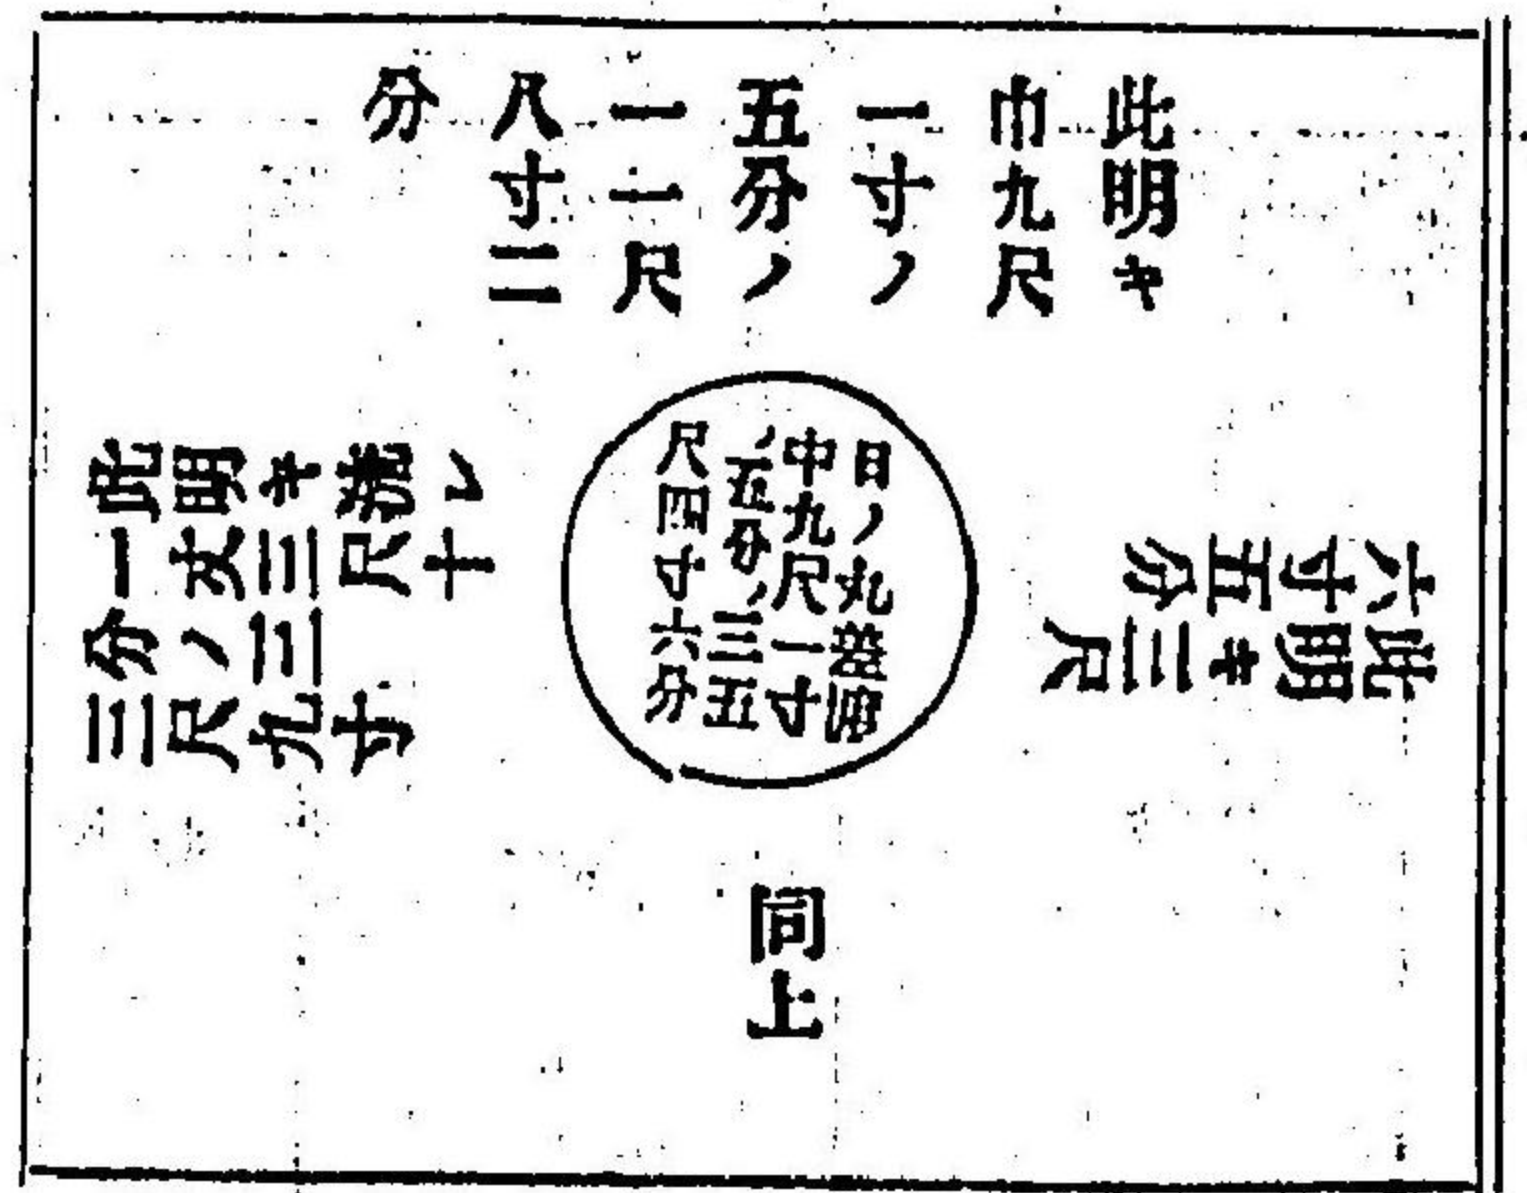 此明キ
巾九尺
一寸ノ
五分ノ
一一尺
八寸二
分
此明キ三尺
六寸五分
日ノ丸差渡
巾九尺一寸
ノ五分ノ三五
尺四寸六分
此明キ流レ
一丈三尺十
分ノ三
三尺九寸
同上